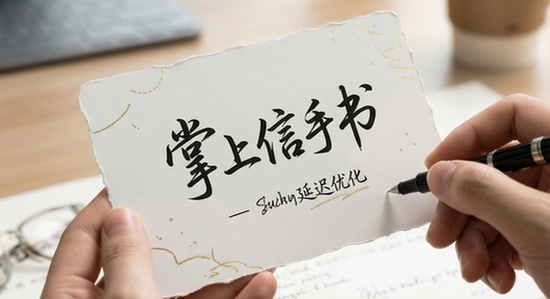 掌上信手书
— Suchy延迟优化